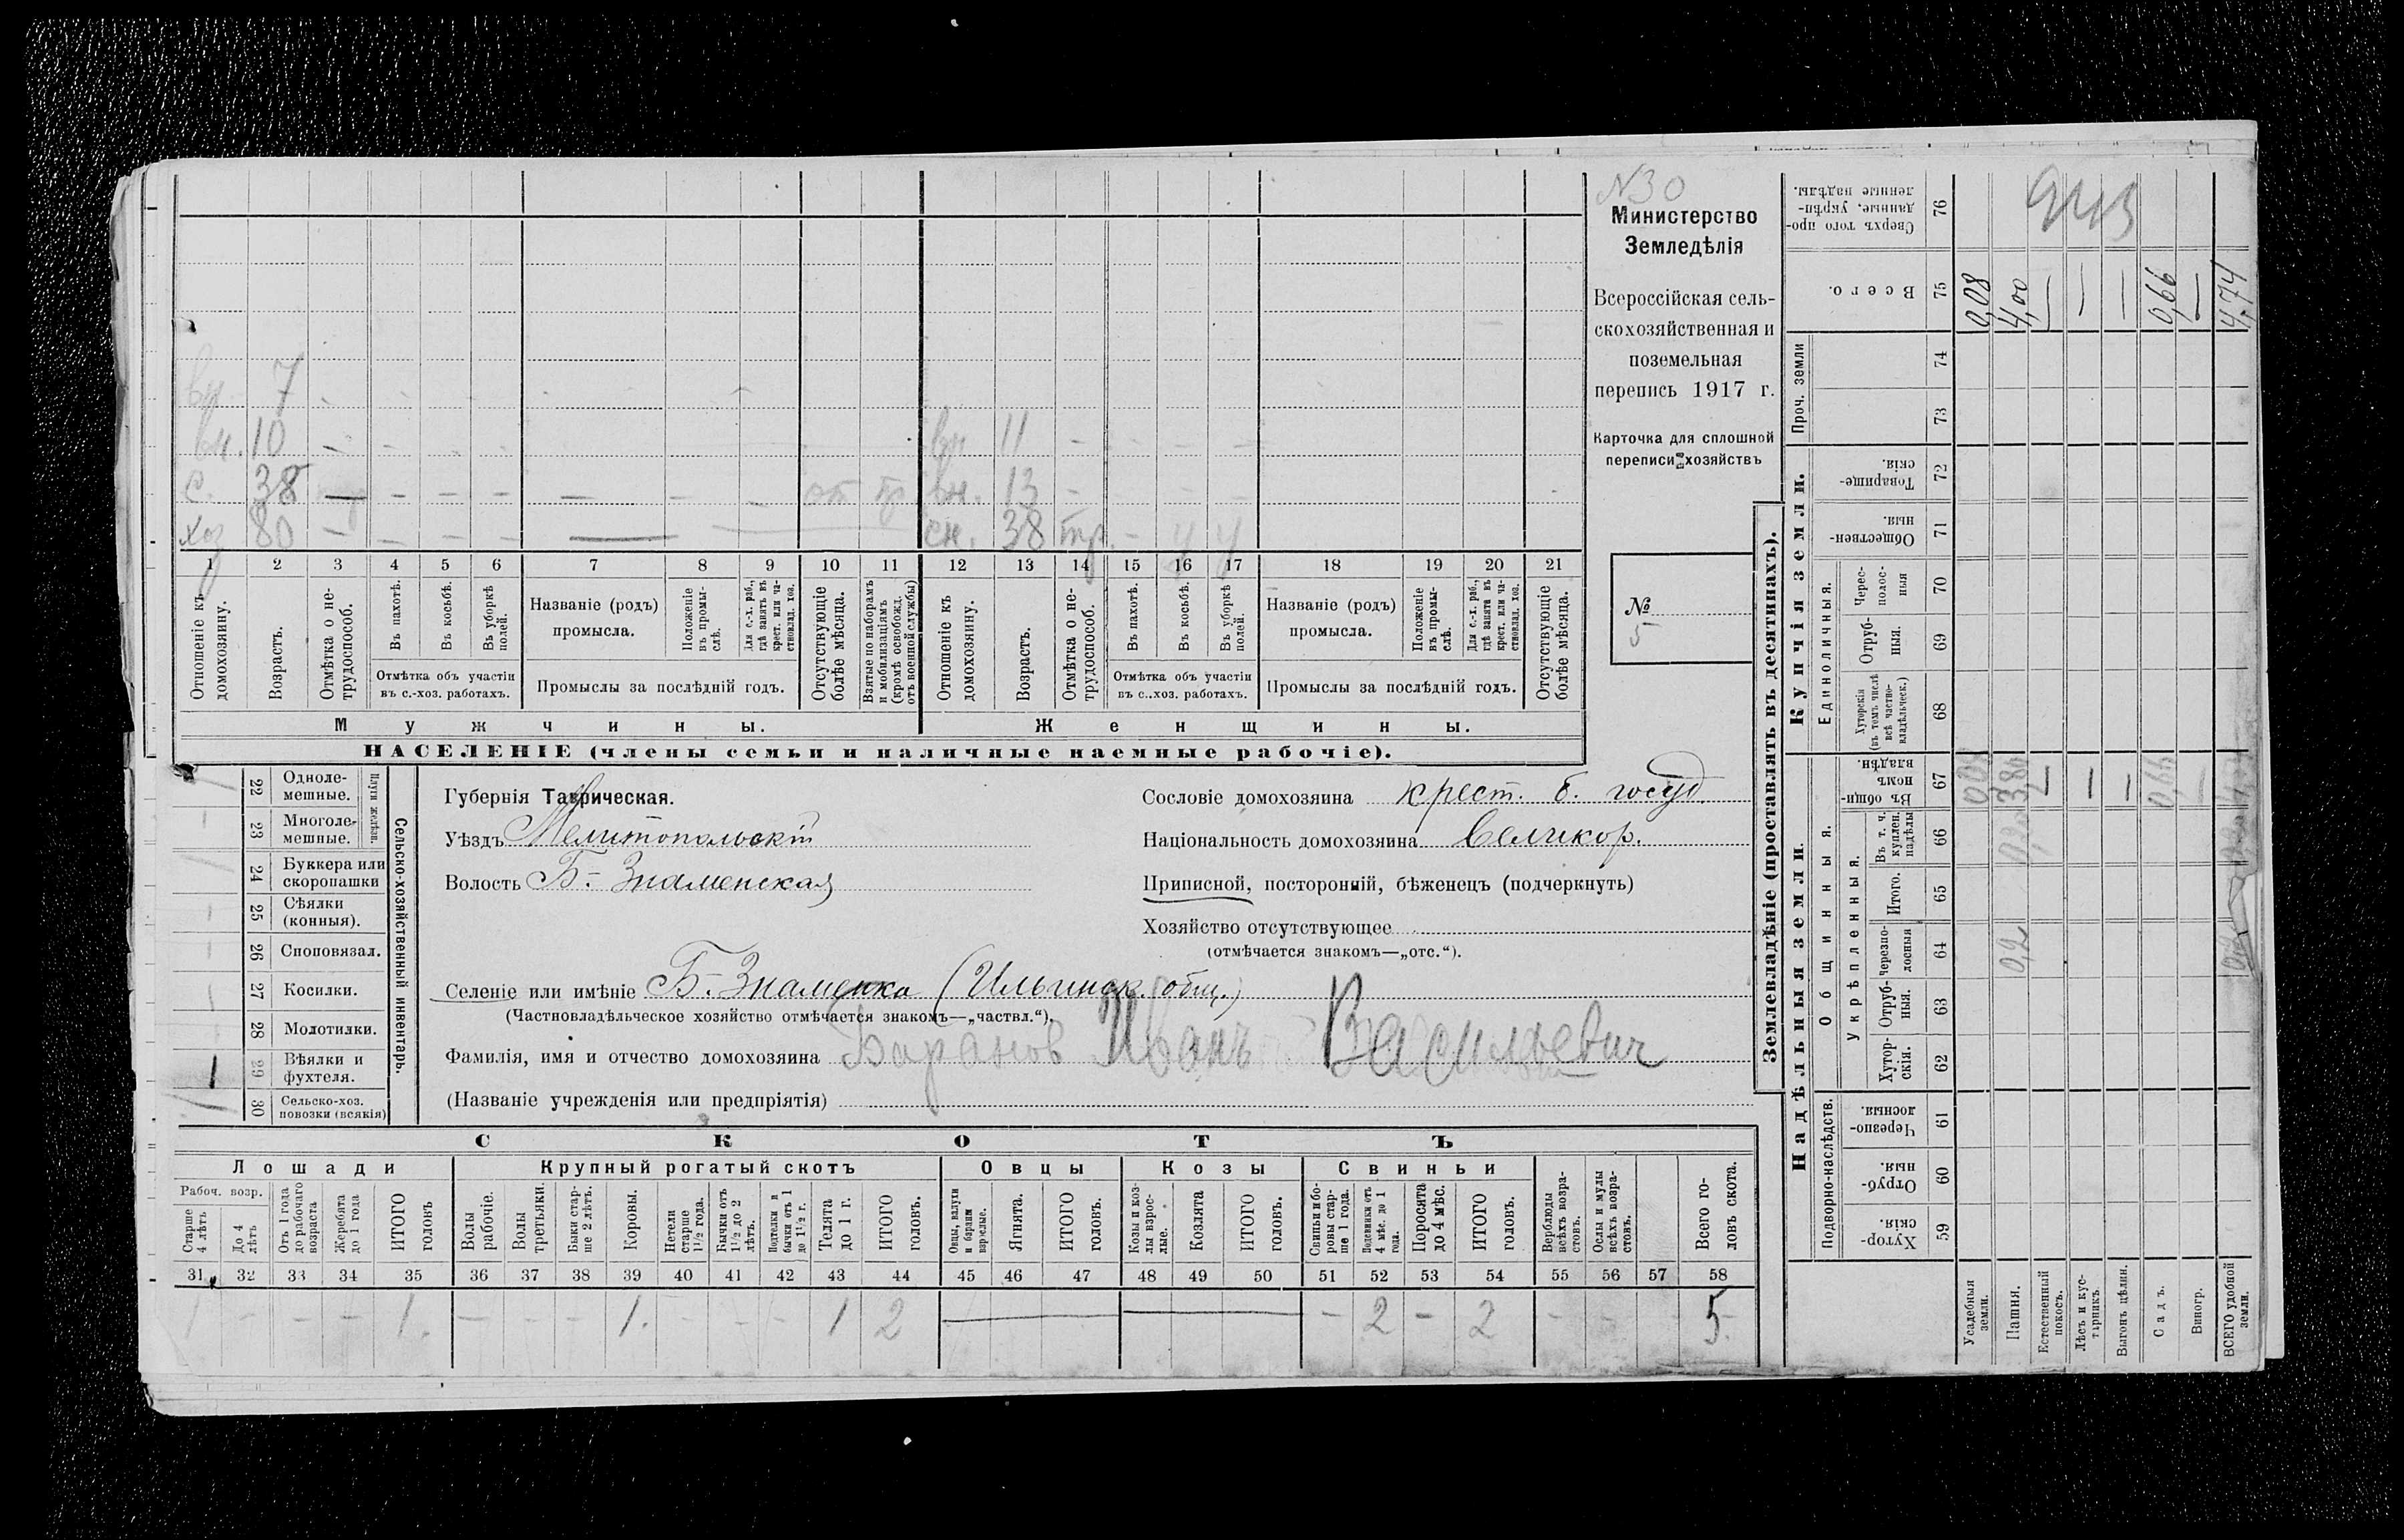 N30
Министерство
Земледѣлія
Всероссійская сель-
скохозяйственная и
поземельная
перепись 1917 г.
Карточка для сплошной
переписи хозяйствъ
№
5
вн. 7 - - - -
вн. 10 - - - - вн 11 - - - -
с. 38 — - - - — - - от вн. 13 - - -
хоз 80 - - - - — сн. 38 тр. - у у
1 2 3 4 5 6 7 8 9 10 11 12 13 14 15 16 17 18 19 20 21
Отношеніе къ домохозяину.
Возрастъ.
Отмѣтка о не-трудоспособ.
Въ пахотѣ.
Въ косьбѣ.
Въ уборкѣ полей.
Отмѣтка объ участіи въ с.-хоз. работахъ.
Названіе (родъ) промысла.
Положеніе въ промы-слѣ.
Для с.-х. раб., гдѣ занятъ въ крест. или ча-стновлад. хоз.
Промыслы за послѣдній годъ.
Отсутствующіе болѣе мѣсяца.
Взятые по наборамъ и мобилизаціямъ (кромѣ освобожд. отъ военной службы)
Отношеніе къ домохозяину.
Возрастъ.
Отмѣтка о не-трудоспособ.
Въ пахотѣ.
Въ косьбѣ.
Въ уборкѣ полей.
Отмѣтка объ участіи въ с.-хоз. работахъ.
Названіе (родъ) промысла.
Положеніе въ промы-слѣ.
Для с.-х. раб., гдѣ занята въ крест. или ча-стновлад. хоз.
Промыслы за послѣдній годъ.
Отсутствующіе болѣе мѣсяца.
Мужчины. Женщины.
НАСЕЛЕНІЕ (члены семьи и наличные наемные рабочіе).
Сельско-хозяйственный инвентарь.
Плуги желѣзн.
22 Одноле-мешные.
23 Многоле-мешные.
24 Буккера или скоропашки
25 Сѣялки (конныя).
26 Сноповязал.
27 Косилки.
28 Молотилки.
1 29 Вѣялки и фухтеля.
30 Сельско-хоз. повозки (всякія)
Губернія Таврическая.
Уѣздъ Мелитопольскій
Волость Б.-Знаменская
Сословіе домохозяина крест. б. госуд.
Національность домохозяина Великор.
Приписной, посторонній, бѣженецъ (подчеркнуть)
Хозяйство отсутствующее
(отмѣчается знакомъ—„отс.“).
Селеніе или имѣніе Б.-Знаменка (Ильинск. общ.)
(Частновладѣльческое хозяйство отмѣчается знакомъ—„частвл.“).
Фамилія, имя и отчество домохозяина Баранов Иванъ Васильевич
(Названіе учрежденія или предпріятія)
СКОТЪ
Лошади Крупный рогатый скотъ Овцы Козы Свиньи
Рабоч. возр.
Старше 4 лѣтъ
До 4 лѣтъ
Отъ 1 года до рабочаго возраста
Жеребята до 1 года
ИТОГО головъ
Волы рабочіе.
Волы третьяки.
Быки стар-ше 2 лѣтъ.
Коровы.
Нетели старше 1 1/2 года.
Бычки отъ 1 1/2 до 2 лѣтъ.
Подтелки и бычки отъ 1 до 1 1/2 г.
Телята до 1 г.
ИТОГО головъ.
Овцы, валухи и бараны взрослые.
Ягнята.
ИТОГО головъ.
Козы и коз-лы взрос-лые.
Козлята
ИТОГО головъ.
Свиньи и бо-ровы стар-ше 1 года.
Подсвинки отъ 4 мѣс. до 1 года.
Поросята до 4 мѣс.
ИТОГО головъ.
Верблюды всѣхъ возра-стовъ.
Ослы и мулы всѣхъ возра-стовъ.
Всего го-ловъ скота.
31 32 33 34 35 36 37 38 39 40 41 42 43 44 45 46 47 48 49 50 51 52 53 54 55 56 57 58
1 - - - 1. - - - 1. - - - 1 2 — — - 2 - 2 - - 5
Землевладѣніе (проставлять въ десятинахъ).
Надѣльныя земли. Купчія земли.
Подворно-наслѣдств.
Общинныя.
Укрѣпленныя.
Единоличныя.
Проч. земли
Хутор-скія. 59
Отруб-ныя. 60
Черезпо-лосныя. 61
Хутор-скія. 62
Отруб-ныя. 63
Черезпо-лосныя 64
Итого. 65
Въ т. ч. куплен. надѣлы 66
Въ общи-номъ владѣн. 67
Хуторскія (въ томъ числѣ всѣ частно-владѣльческ.) 68
Отруб-ныя. 69
Черес-полос-ныя 70
Обществен-ныя. 71
Товарище-скія. 72
73
74
Всего. 75
Сверхъ того про-данные, укрѣп-ленные надѣлы. 76
Усадебныя земли. 0,08 0,08
Пашня. 0,2 0,2 3,80 4,00
Естественный покосъ. — —
Лѣсъ и кус-тарникъ. — —
Выгонъ цѣлин. — —
Садъ. 0,66 0,66
Виногр. — —
ВСЕГО удобной земли. 4,74